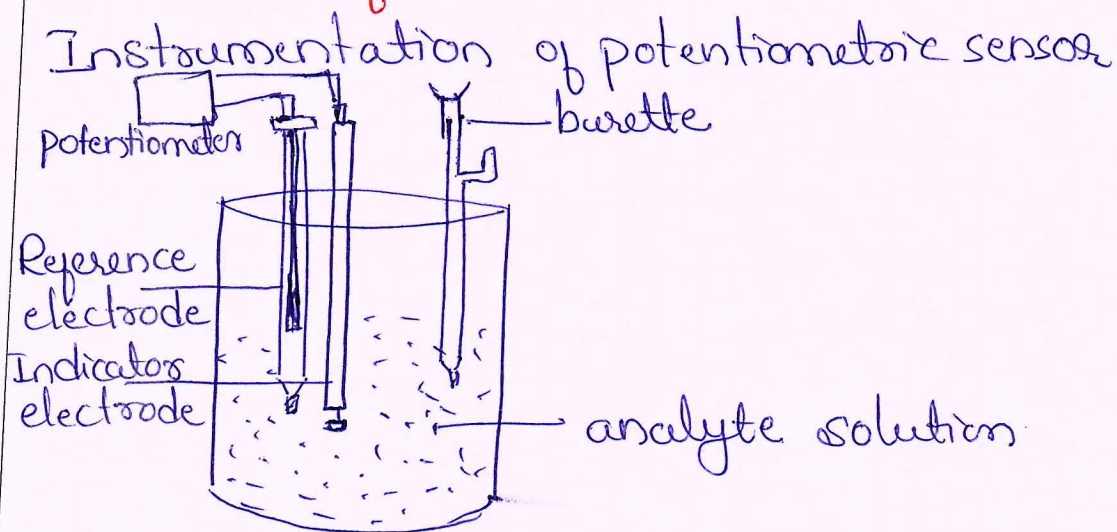 Instrumentation of potentiometric sensor
burette
potentiometer
Reference
electrode
Indicator
electrode
analyte solution